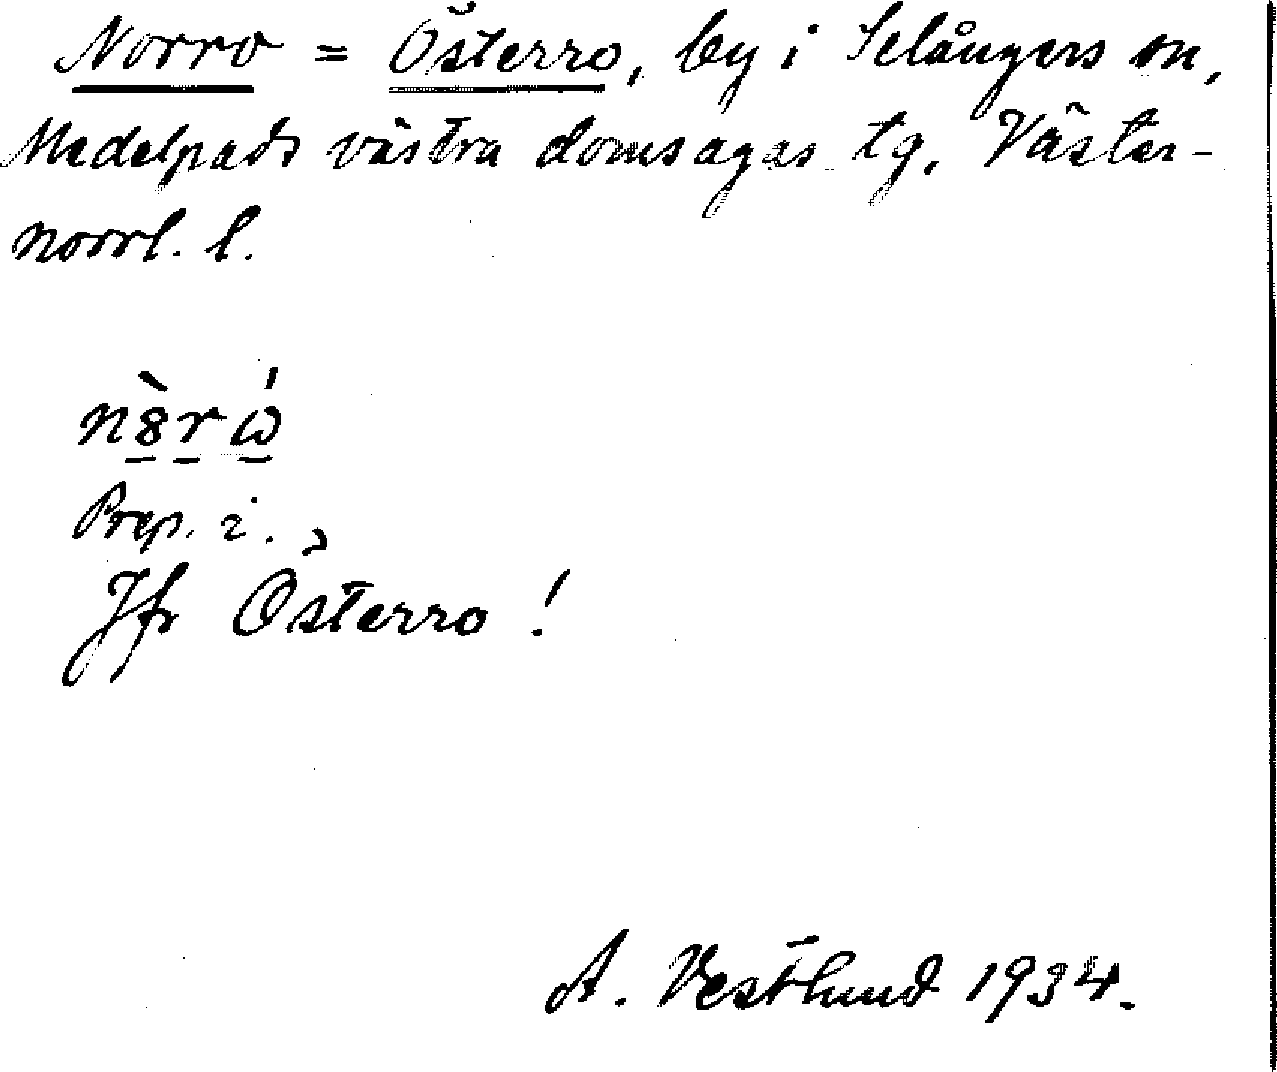 Norro = Österro, by i Selångers sn,
Medelpads västra domsagas tg, Väster-
norrl. l.
Prep. i.
Jfr Österro!
A. Vestlund 1934.